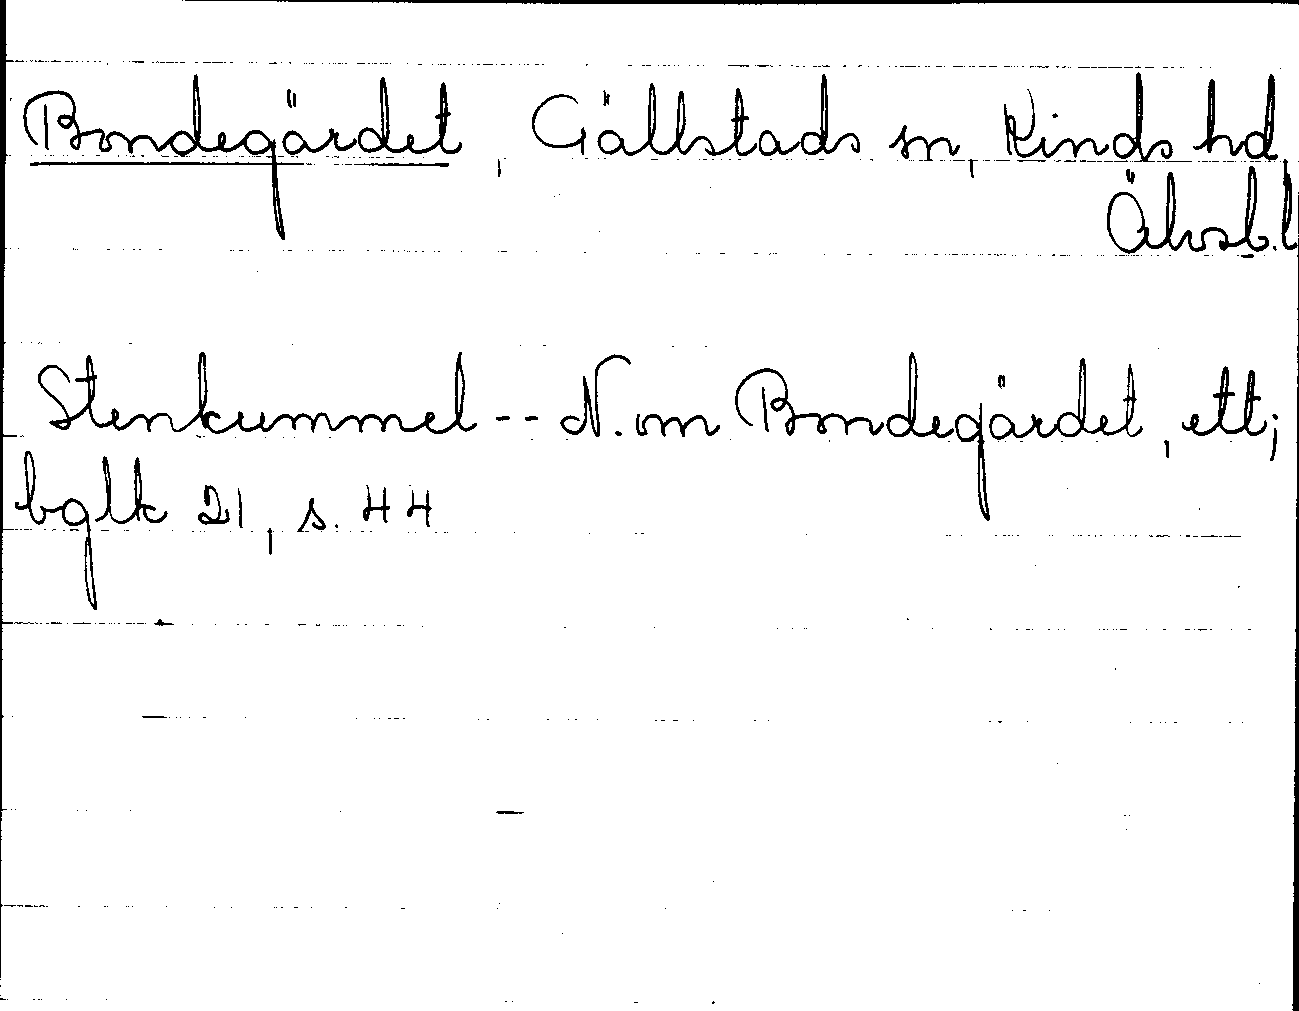 Bondegärdet, Gällstads sn, Kinds hd,
Älvsb.l
Stenkummel -- N. om Bondegärdet, ett;
bglk 21, s. 44